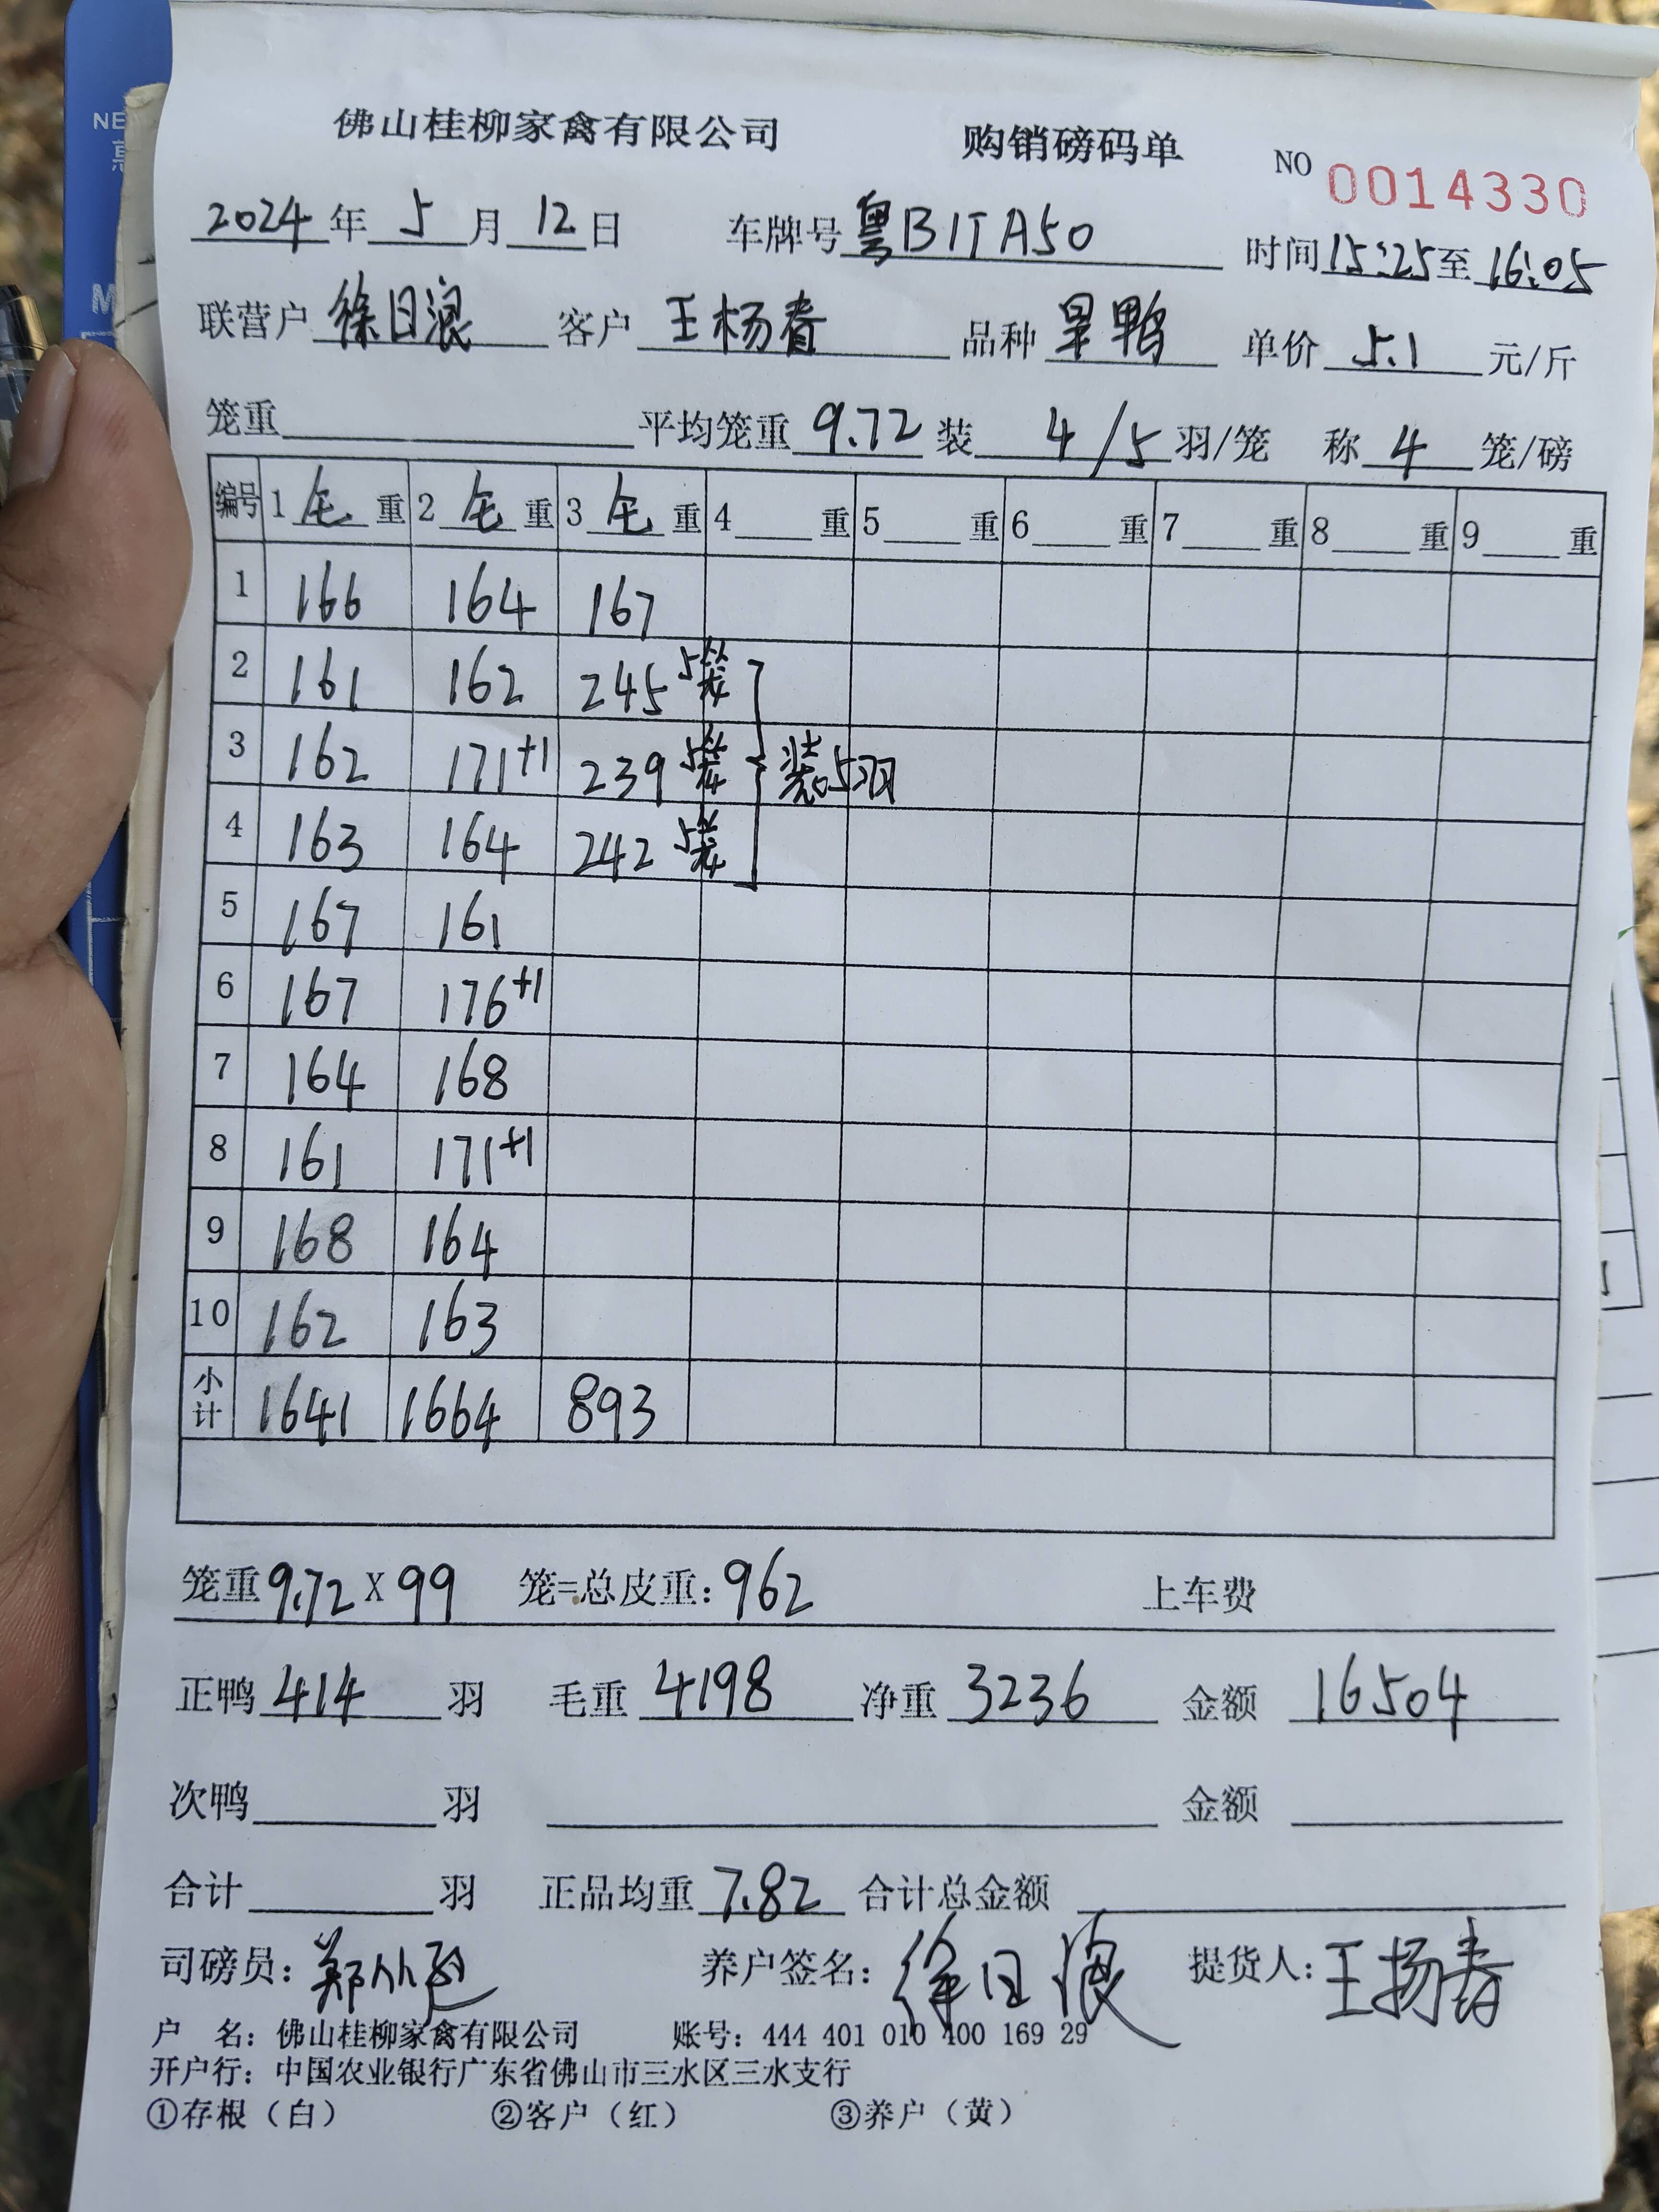 佛山桂柳家禽有限公司 购销磅码单 NO 0014330
2024年5月12日 车牌号粤B1TA50 时间15:25至16:05
联营户徐日浪 客户王杨春 品种旱鸭 单价5.1元/斤
笼重 平均笼重9.72装4/5羽/笼 称4笼/磅
编号 1毛重 2毛重 3毛重 4重 5重 6重 7重 8重 9重
1 166 164 167
2 161 162 245 5笼
3 162 171+1 239 5笼 装5羽
4 163 164 242 5笼
5 167 161
6 167 176+1
7 164 168
8 161 171+1
9 168 164
10 162 163
小计 1641 1664 893
笼重9.72X99 笼=总皮重:962 上车费
正鸭414羽 毛重4198 净重3236 金额16504
次鸭 羽 金额
合计 羽 正品均重7.82 合计总金额
司磅员:郑 养户签名:徐日浪 提货人:王扬春
户 名:佛山桂柳家禽有限公司 账号:444 401 010 400 169 29
开户行:中国农业银行广东省佛山市三水区三水支行
①存根(白) ②客户(红) ③养户(黄)